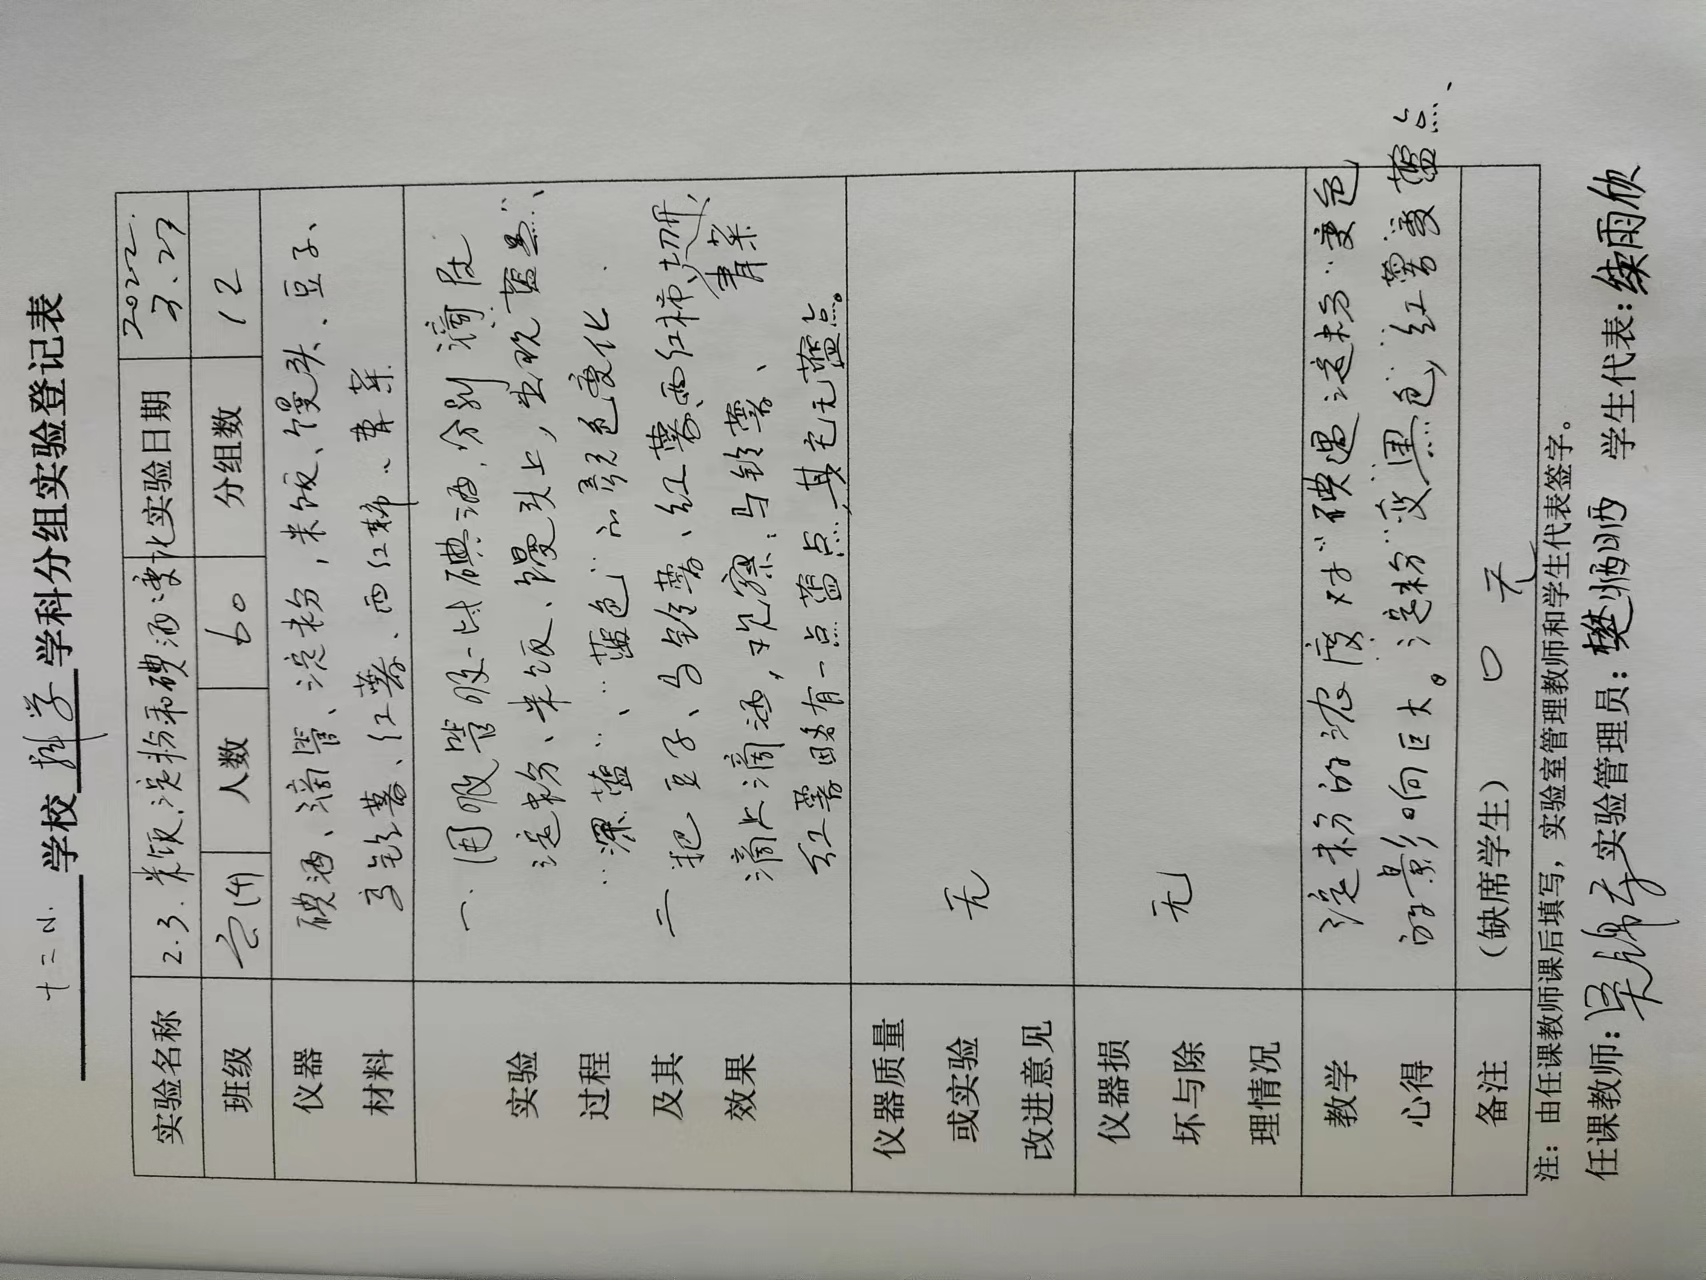 十二小 学校 科学 学科分组实验登记表
实验名称 2.3. 米饭、淀粉和碘酒变化 实验日期 2022. 3.27
班级 六(4) 人数 60 分组数 12
仪器 碘酒、滴管、淀粉,米饭、馒头、豆子、
材料 马铃薯、红薯、西红柿、青菜
实验 一、用吸管吸一些碘酒,分别滴在
过程 淀粉、米饭、馒头上,出现"蓝黑"、
及其 "深蓝"、"蓝色"的颜色变化.
效果 二 把豆子、马铃薯、红薯、西红柿、
青菜
滴上滴液,观察:马铃薯、
红薯略有一点蓝点,其它无蓝点。
仪器质量
或实验 无
改进意见
仪器损
坏与除 无
理情况
教学 淀粉的浓度对"碘遇淀粉"变色
心得 的影响巨大。淀粉"变黑色",红薯变蓝点、
备注 (缺席学生) 0 无
注:由任课教师课后填写,实验室管理教师和学生代表签字。
任课教师: 实验管理员: 学生代表: